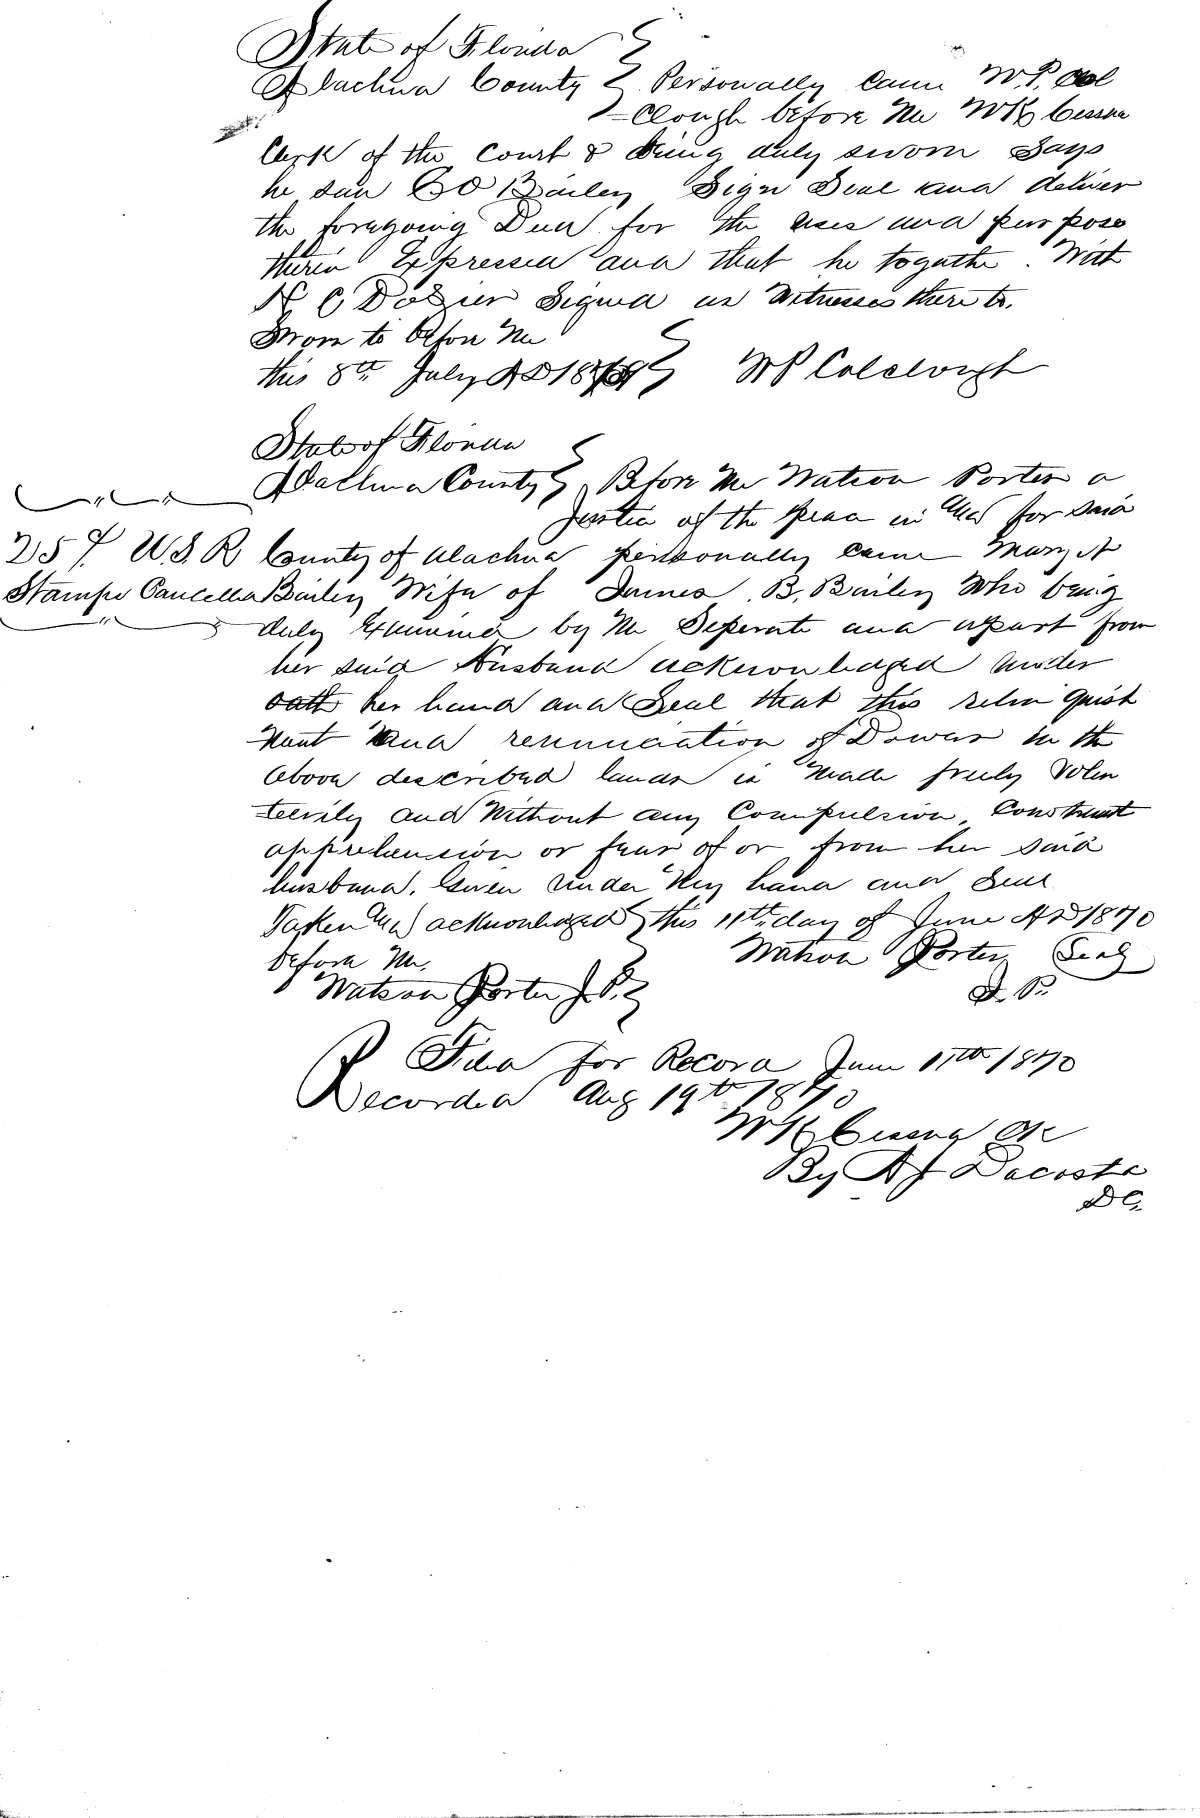 State of Florida
Alachua County Personally came W. P. Col
=Clough before Me WK Cessna
Clerk of the Court & being duly sworn Says
he saw Bailey Sign Seal and deliver
the foregoing Deed for the uses and purpose
therin Expressed and that he togathe With
N C Dozier Signed as Witnesses thereto.
Sworn to before Me
this 8th July AD 1869 WP Colclough
State of Florida
Alachua County Before Me Watson Porter a
Justice of the peace in and for said
25 ¢ U.S. R County of Alachua personally came Mary A
Stamps Cancelled Bailey Wife of James B. Bailey Who being
duly Examined by Me Seperate and apart from
her said Husband acknowledged under
oath her hand and Seal that this relinquish
ment and renunciation of Dower in the
above described lands is made freely Volun
teerily and Without any Compulsion, Constraint
apprehension or fear of or from her said
husband. Given under My hand and Seal
Taken and acknowledged this 11th day of June AD 1870
before Me. Watson Porter Seal
Watson Porter J. P. J. P.
Filed for Record June 11th 1870
Recorded Aug 19th 1870
WK Cessna Clk
By A J Dacosta
DC.